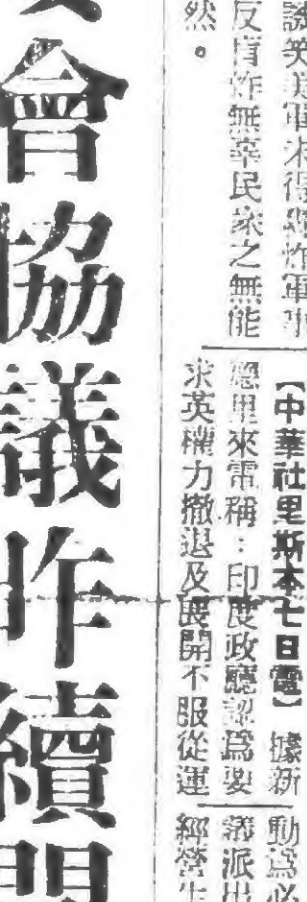 笑美軍不得轟炸軍事
反盲炸無辜民衆之無能
然。
【中華社里斯本七日電】據新
德里來電稱：印度政廳認爲要
求英權力撤退及展開不服從運
動爲必
派出
經營生
會協議昨續開